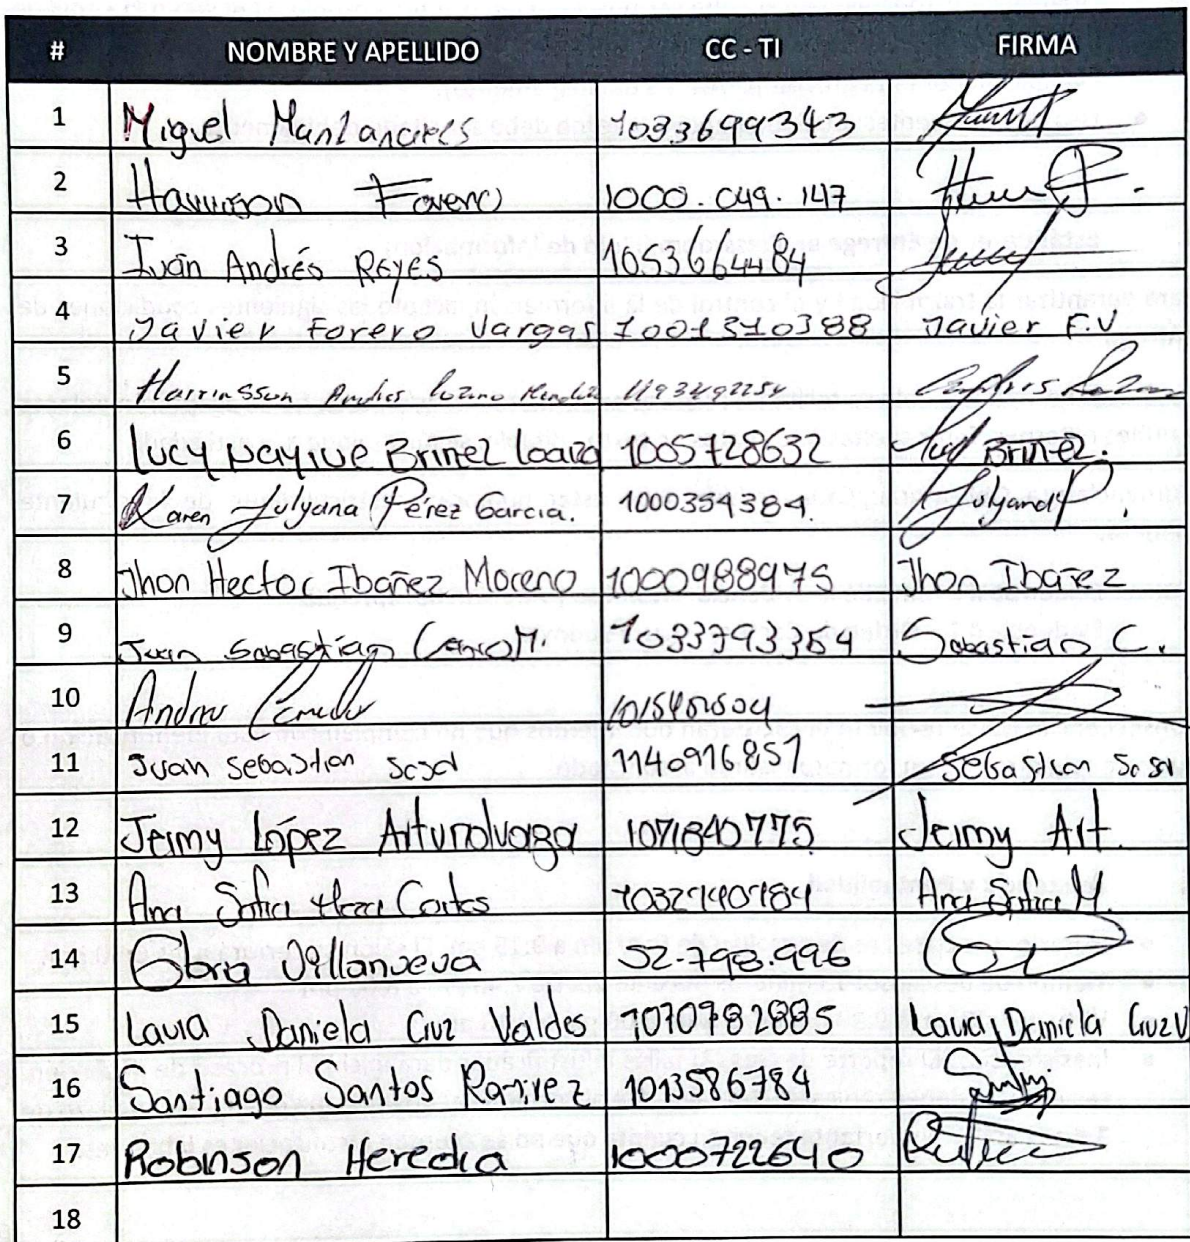 # NOMBRE Y APELLIDO CC - TI FIRMA
1 Miguel Manzanares 1033699343
2 Harrison Forero 1000.049.147
3 Iván Andrés Reyes 1053664484
4 Javier Forero Vargas 1001310388 Javier F.V
5 Harrinsson Andres Lozano
6 Lucy Nayive Briñez Loaiza 1005728632 Lucy Briñez.
7 Karen Julyana Pérez Garcia. 1000354384. Julyana P.
8 Jhon Hector Ibañez Moreno 1000988975 Jhon Ibañez
9 Juan Sebastián M. 1033793364 Sebastián C.
10 Andres
11 Juan Sebastian Sosa 1140916851 Sebastian Sosa
12 Jeimy López 1071840775 Jeimy Art
13 Ana Sofia Cortes 1032940984 Ana Sofia
14 Villanueva 52.798.996
15 Laura Daniela Cruz Valdes 1070782885 Laura Daniela Cruz V
16 Santiago Santos Ramirez 1013586784
17 Robinson Heredia 1000722640
18